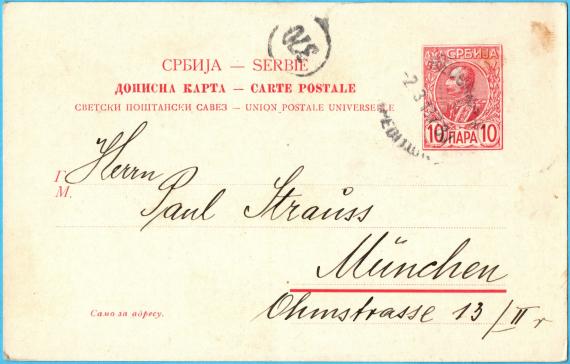 СРБИЈА — SERBIE
ДОПИСНА КАРТА — CARTE POSTALE
СВЕТСКИ ПОШТАНСКИ САВЕЗ — UNION POSTALE UNIVERSELLE
СРБИЈА
10 ПАРА 10
Г.
М.
Herrn
Paul Strauss
München
Ohmstrasse 13/II r
Само за адресу.